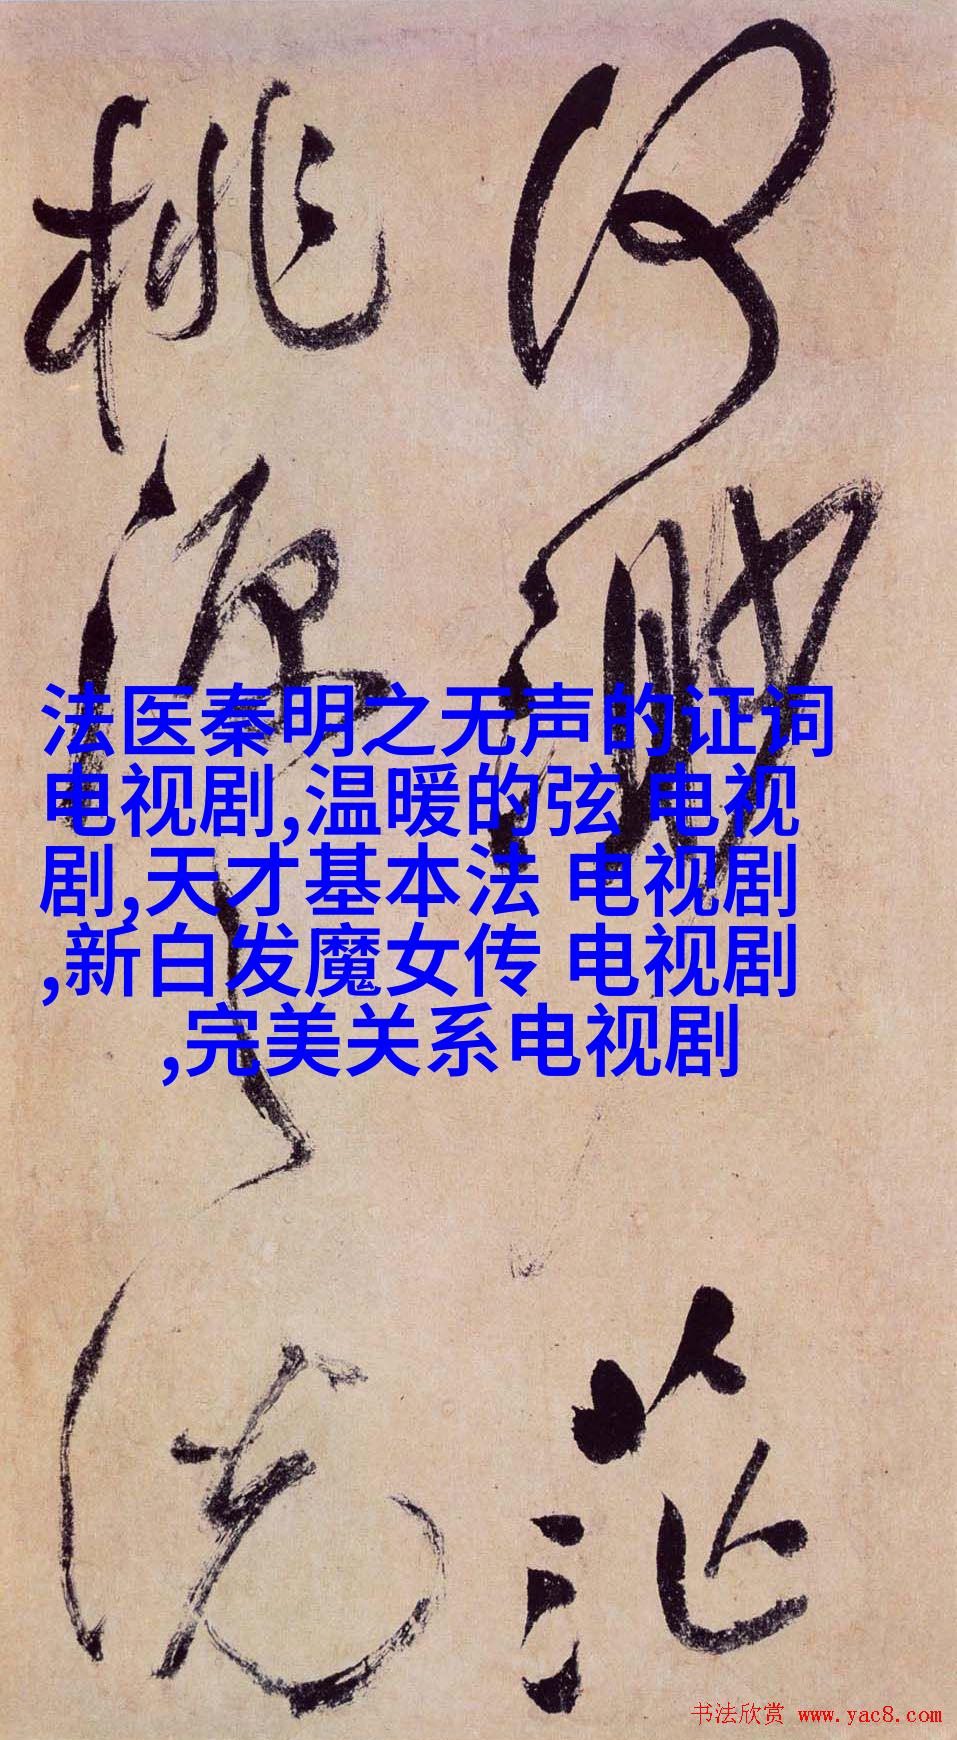 何渺茫
桃源之說
法医秦明之无声的证词
电视剧,温暖的弦 电视
剧,天才基本法 电视剧
,新白发魔女传 电视剧
,完美关系电视剧
书法欣赏 www.yac8.com